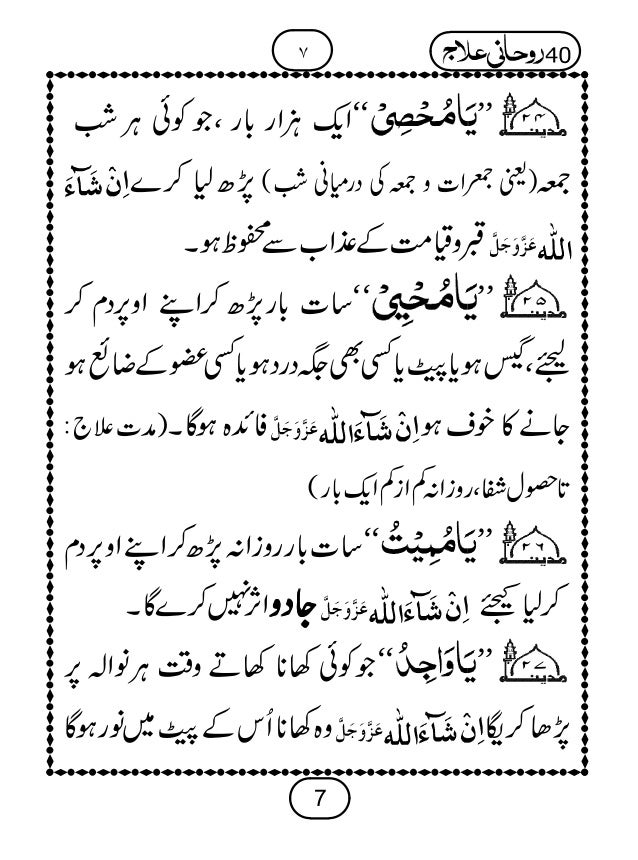 40 روحانی علاج
۷
مدینہ ۲۴ ’’یَامُحْصِیْ‘‘ ایک ہزار بار ،جو کوئی ہر شب
جمعہ(یعنی جمعرات و جمعہ کی درمیانی شب) پڑھ لیا کرے اِنْ شَآءَ
اللہ عَزَّوَجَلَّ قبر و قیامت کے عذاب سے محفوظ ہو۔
مدینہ ۲۵ ’’یَامُحْیِیْ‘‘ سات بار پڑھ کر اپنے اوپر دم کر
لیجئے، گیس ہو یا پیٹ یا کسی بھی جگہ درد ہو یا کسی عضو کے ضائع ہو
جانے کا خوف ہو اِنْ شَآءَاللہ عَزَّوَجَلَّ فائدہ ہوگا۔(مدت علاج:
تا حصول شفا، روزانہ کم از کم ایک بار)
مدینہ ۲۶ ’’یَامُمِیْتُ‘‘ سات بار روزانہ پڑھ کر اپنے اوپر دم
کر لیا کیجئے اِنْ شَآءَاللہ عَزَّوَجَلَّ جادو اثر نہیں کرے گا۔
مدینہ ۲۷ ’’یَاوَاجِدُ‘‘ جو کوئی کھانا کھاتے وقت ہر نوالہ پر
پڑھا کریگا اِنْ شَآءَاللہ عَزَّوَجَلَّ وہ کھانا اُس کے پیٹ میں نور ہوگا
7